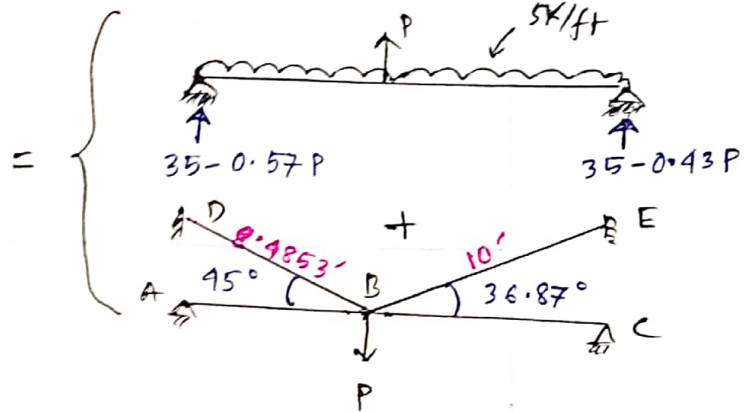 P
5k/ft
=
35-0.57P
35-0.43P
+
D
8.4853'
10'
E
A
45°
B
36.87°
C
P